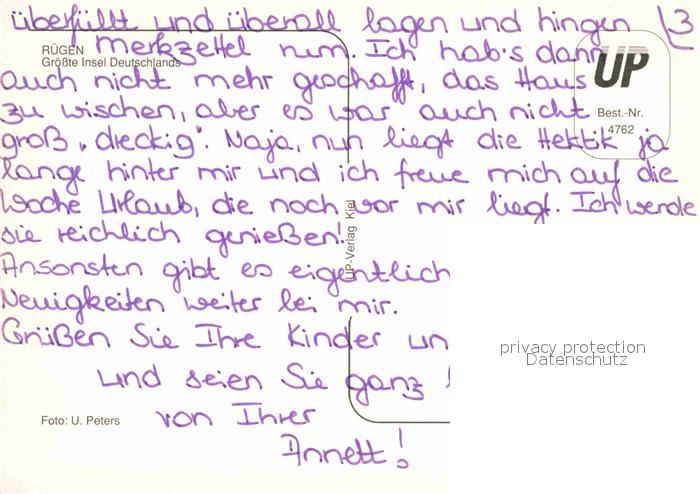 überfüllt und überall lagen und hingen 3
RÜGEN
Größte Insel Deutschlands
Merkzettel rum. Ich hab's dann
auch nicht mehr geschafft, das Haus
UP
zu wischen, aber es war auch nicht
Best.-Nr.
4762
groß "dreckig". Naja, nun liegt die Hektik ja
lange hinter mir und ich freue mich auf die
Woche Urlaub, die noch vor mir liegt. Ich werde
sie reichlich genießen!
UP-Verlag Kiel
Ansonsten gibt es eigentlich
Neuigkeiten weiter bei mir.
Grüßen Sie Ihre Kinder un
privacy protection
Datenschutz
und seien Sie ganz
Foto: U. Peters
von Ihrer
Annett!